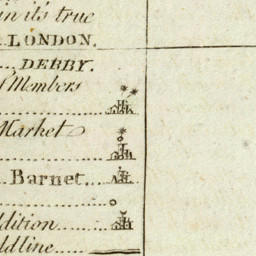 in it's true
LONDON.
DERBY.
Members
Market
Barnet
ddition
ddline